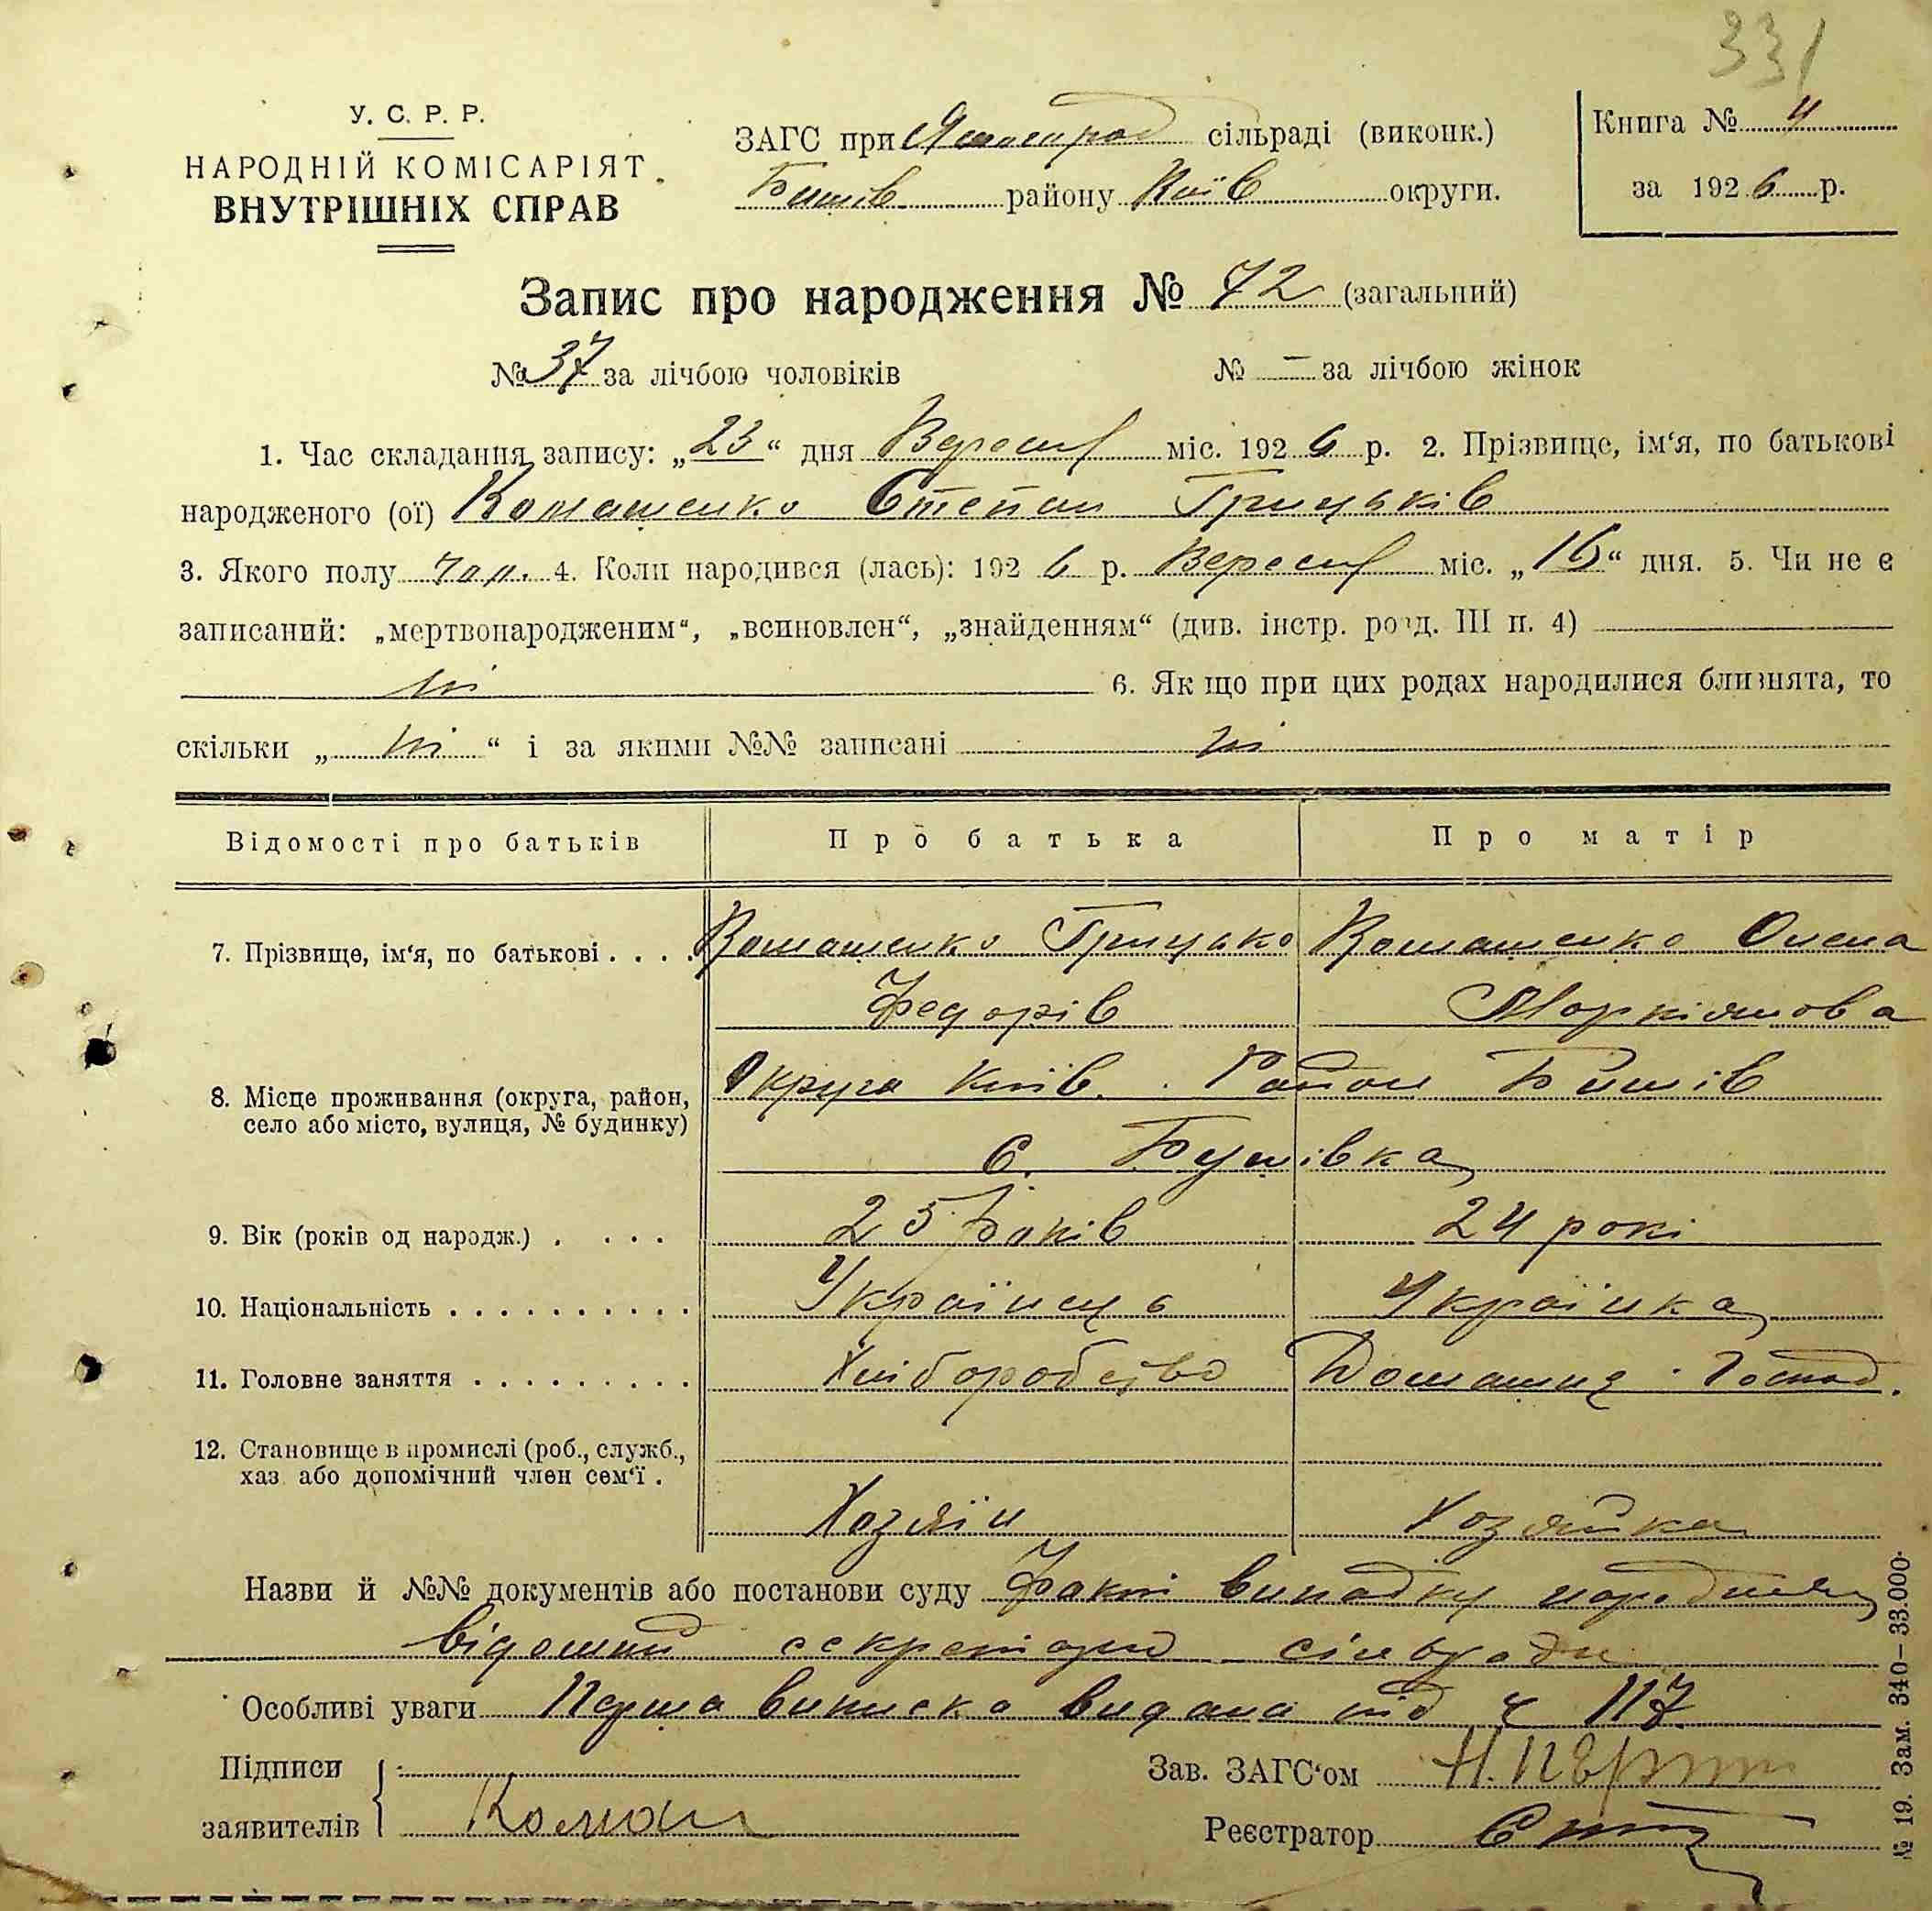 331
У. С. Р. Р.
НАРОДНІЙ КОМІСАРІЯТ
ВНУТРІШНІХ СПРАВ
ЗАГС при сільраді (виконк.)
Бишів району Київ округи.
Книга № 4
за 1926 р.
Запис про народження № 72 (загальний)
№ 37 за лічбою чоловіків № — за лічбою жінок
1. Час складання запису: „23“ дня Вересня міс. 1926 р. 2. Прізвище, ім‘я, по батькові
народженого (ої) Комашенко Степан Грицьків
3. Якого полу чол. 4. Коли народився (лась): 1926 р. Вересня міс. „16“ дня. 5. Чи не є
записаний: „мертвонародженим“, „всиновлен“, „знайденням“ (див. інстр. розд. III п. 4)
ні 6. Якщо при цих родах народилися близнята, то
скільки „ні“ і за якими №№ записані ні
Відомості про батьків Про батька Про матір
7. Прізвище, ім‘я, по батькові . . . . Комашенко Грицько Комашенко Олена
Федорів Маркіянова
8. Місце проживання (округа, район, Округа Київ. Район Бишів
село або місто, вулиця, № будинку) с. Буцівка
9. Вік (років од народж.) . . . . 25 років 24 рокі
10. Національність . . . . . . . . . . Українець Українка
11. Головне заняття . . . . . . . . . Хліборобство Домашнє Господ.
12. Становище в промислі (роб., служб.,
хаз. або допомічний член сем‘ї .
Хозяїн Хозяйка
Назви й №№ документів або постанови суду Факт випадку народження
відомий секретарю сільради
Особливі уваги Перша виписка видана під ч 117
Підписи
заявителів Комаш
Зав. ЗАГС‘ом
Реєстратор
№ 19. Зам. 340—33.000.